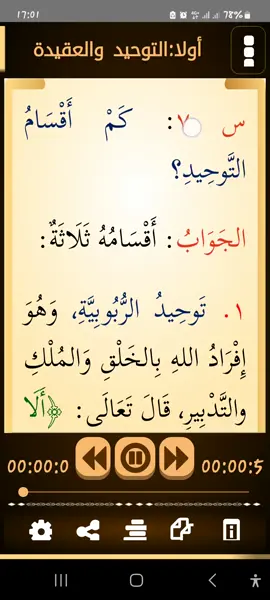 ١٧:٥١
٧٨%
أولا:التوحيد والعقيدة
س ٧: كَمْ أَقْسَامُ
التَّوحِيدِ؟
الجَوَابُ: أَقْسَامُهُ ثَلَاثَةٌ:
١. تَوحِيدُ الرُّبُوبِيَّةِ، وَهُوَ
إِفْرَادُ اللهِ بِالخَلْقِ وَالمُلْكِ
والتَّدْبِيرِ، قَالَ تَعَالَى: ﴿أَلَا
00:00:0
00:00:5